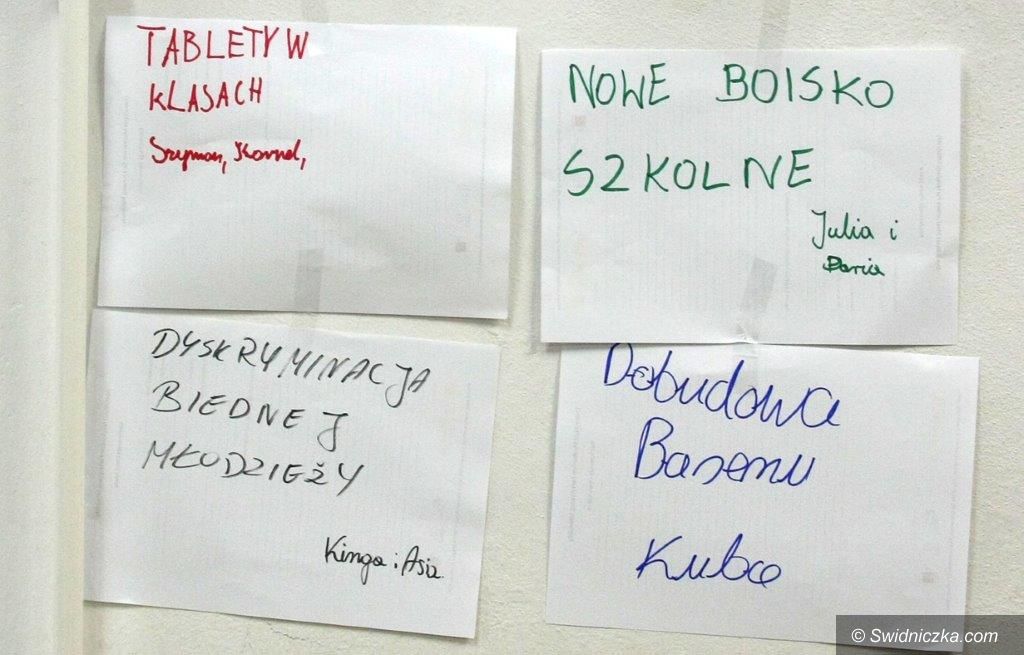 TABLETY W
KLASACH
Szymon, Kornel,
NOWE BOISKO
SZKOLNE
Julia i
Daria
DYSKRYMINACJA
BIEDNEJ
MŁODZIEŻY
Kinga i Asia
Dobudowa
Basenu
Kuba
© Swidniczka.com